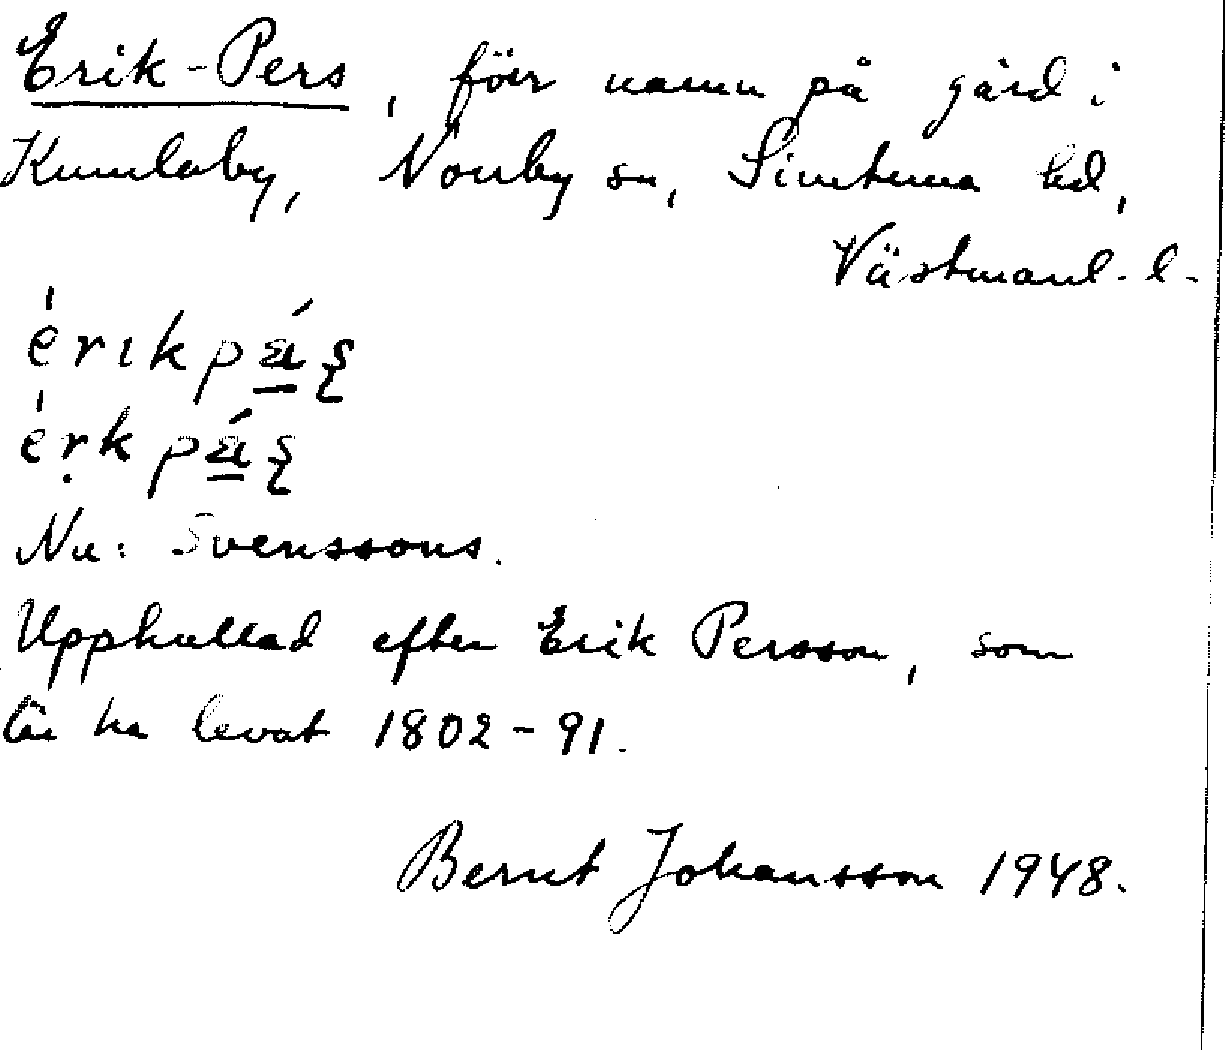 Erik-Pers, förr namn på gård i
Kumlaby, Nourby sn, Simtuna hd,
Västmanl. l.
érikpä́ʂ
érkpä́ʂ
Nu: Svenssons.
Uppkallad efter Erik Persson, som
lär ha levat 1802-91.
Bernt Johansson 1948.